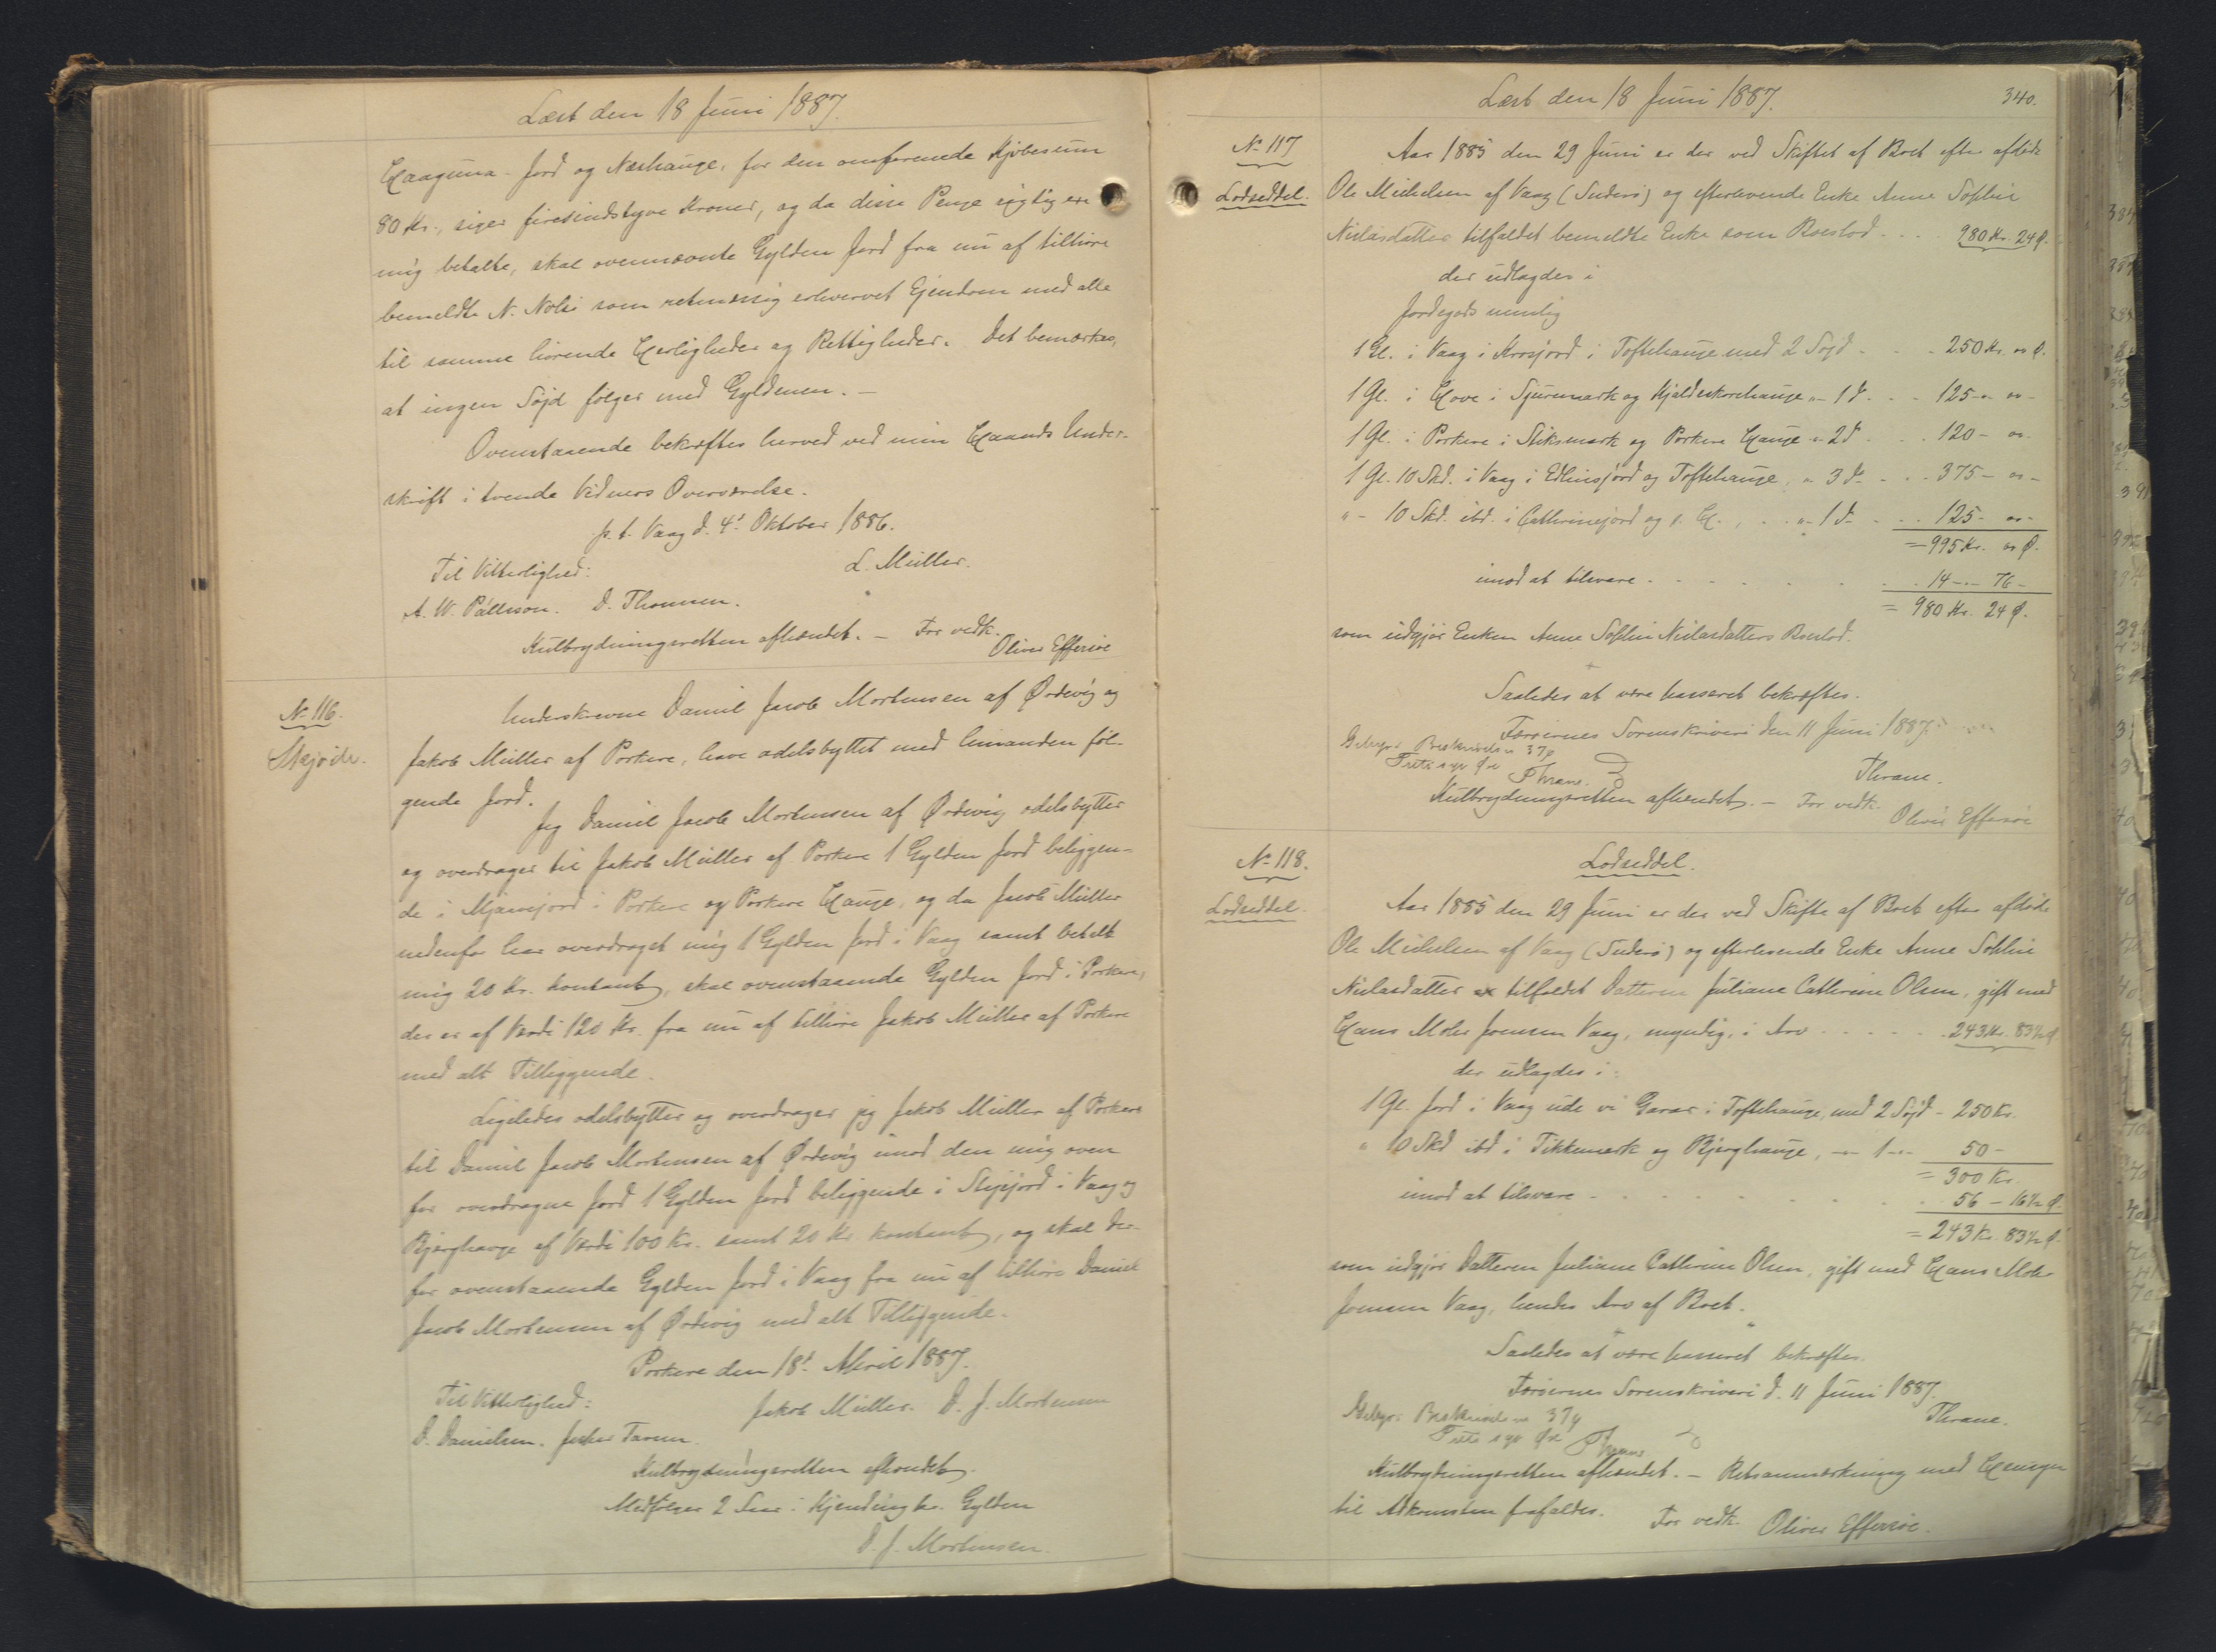 Læst den 18 Juni 1887.
Haaguna-Jord og Næshauge, for den omførende Kjøbesum
80 Kr., siger firesindstyve Kroner, og da disse Penge rigtig ere
mig betalte, skal ovennævnte Gylden Jord fra nu af tilhøre
bemeldte N. Nolsø som retmæssig erhvervet Ejendom med alle
til samme hørende Herligheder og Rettigheder. Det bemærkes,
at ingen Søjd følger med Gyldenen. —
Ovenstaaende bekræftes herved ved min Haands Under-
skrift i tvende Vidners Overværelse.
p. t. Vaag d. 4' Oktober 1886.
Til Vitterlighed: L. Müller.
A. W. Pállsson. D. Thomsen.
Kulbrydningsretten afhændet. — For vedk.
Oliver Effersøe
No 116.
Skjøde.
Underskrevne Daniel Jacob Mortensen af Ørdevig og
Jakob Müller af Porkere, have odelsbyttet med hinanden føl-
gende Jord.
Jeg Daniel Jacob Mortensen af Ørdevig odelsbytter
og overdrager til Jakob Müller af Porkere 1 Gylden Jord beliggen-
de i Mjavejord i Porkere og Porkere Hauge, og da Jacob Müller
nedenfor har overdraget mig 1 Gylden Jord i Vaag samt betalt
mig 20 Kr. kontant, skal ovenstaaende Gylden Jord i Porkere,
der er af Værdi 120 Kr. fra nu af tilhøre Jakob Müller af Porkere
med alt Tilliggende.
Ligeledes odelsbytter og overdrager jeg Jakob Müller af Porkere
til Daniel Jacob Mortensen af Ørdevig imod den mig oven
for overdragne Jord 1 Gylden Jord beliggende i Jord i Vaag og
Bjerghauge af Værdi 100 Kr. samt 20 Kr. kontant, og skal der-
for ovenstaaende Gylden Jord i Vaag fra nu af tilhøre Daniel
Jacob Mortensen af Ørdevig med alt Tilliggende.
Porkere den 18' April 1887.
Til Vitterlighed: Jakob Müller. D. J. Mortensen
D. Danielsen.
Kulbrydningsretten afhændet.
Medfølger 2 Gylden
D. J. Mortensen.
Læst den 18 Juni 1887.
340.
No 117
Lodseddel.
Aar 1885 den 29 Juni er der ved Skiftet af Boet efter afdøde
Ole Michelsen af Vaag (Suderø) og efterlevende Enke Anne Sophie
Nielasdatter tilfaldet bemeldte Enke som Boeslod . . . 980 Kr. 24 Ø.
der udlagdes i
Jordegods nemlig
1 Gl. i Vaag i Krosjord i Toftehauge med 2 Søjd - - - 250 Kr. " Ø.
1 Gl. i Hove i Sjuremark og Kjaldeskorehauge "- 1 d. - - 125 - " -
1 Gl. i Porkere i Stiksmark og Porkere Hauge "- 2 d - - - 120 - " -
1 Gl. 10 Skd. i Vaag i Edlinsjord og Toftehauge, " 3 d. - - - 375 - " -
" - 10 Skd. ibd. i Cathrinejord og s. H., . . "- 1 d. - - - 125 - " -
= 995 Kr. " Ø.
imod at tilsvare - - - - - - 14 - " - 76 -
= 980 Kr. 24 Ø.
som udgjør Enken Anne Sophie Nielasdatters Boeslod.
Saaledes at være passeret bekræftes.
Færøernes Sorenskriveri den 11 Juni 1887.
Gebyr: Beskrivelse 37 Ø
Thrane.
Thrane.
Kulbrydningsretten afhændet. — For vedk.
Oliver Effersøe
No 118.
Lodseddel.
Lodseddel.
Aar 1885 den 29 Juni er der ved Skifte af Boet efter afdøde
Ole Michelsen af Vaag (Suderø) og efterlevende Enke Anne Sophie
Nielasdatter tilfaldet Datteren Juliane Cathrine Olsen, gift med
Hans Mohr Joensen Vaag, myndig, i Arv - - - - - 243 Kr. 83½ Ø
der udlagdes i:
1 Gl. Jord i Vaag ude vi Garar i Toftehauge, med 2 Søjd - 250 Kr.
" 10 Skd ibd. i Tikkemark og Bjerghauge, -"- 1 -"- 50 -
= 300 Kr.
imod at tilsvare - - - - - - 56 - 16½ Ø.
= 243 Kr. 83½ Ø.
som udgjør Datteren Juliane Cathrine Olsen, gift med Hans Mohr
Joensen Vaag, hendes Arv af Boet.
Saaledes at være passeret bekræftes.
Færøernes Sorenskriveri d. 11 Juni 1887.
Gebyr: Beskrivelse 37 Ø
Thrane
Thrane.
Kulbrydningsretten afhændet. — Retsanmærkning med Hensyn
til Adkomsten frafaldes. For vedk. Oliver Effersøe.